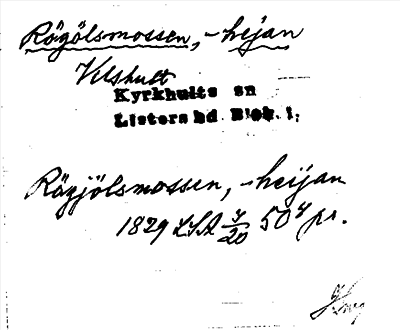 Rögölsmossen, -heijan
Vilshult
Kyrkhults sn
Listers hd Blek. l.
Rögjölsmossen, -heijan
1829 LSA 50 pr.